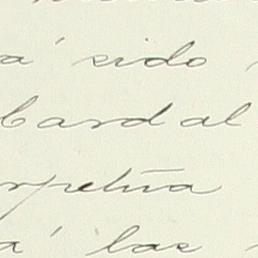 a' sido
bardal
rpetúa
a' las